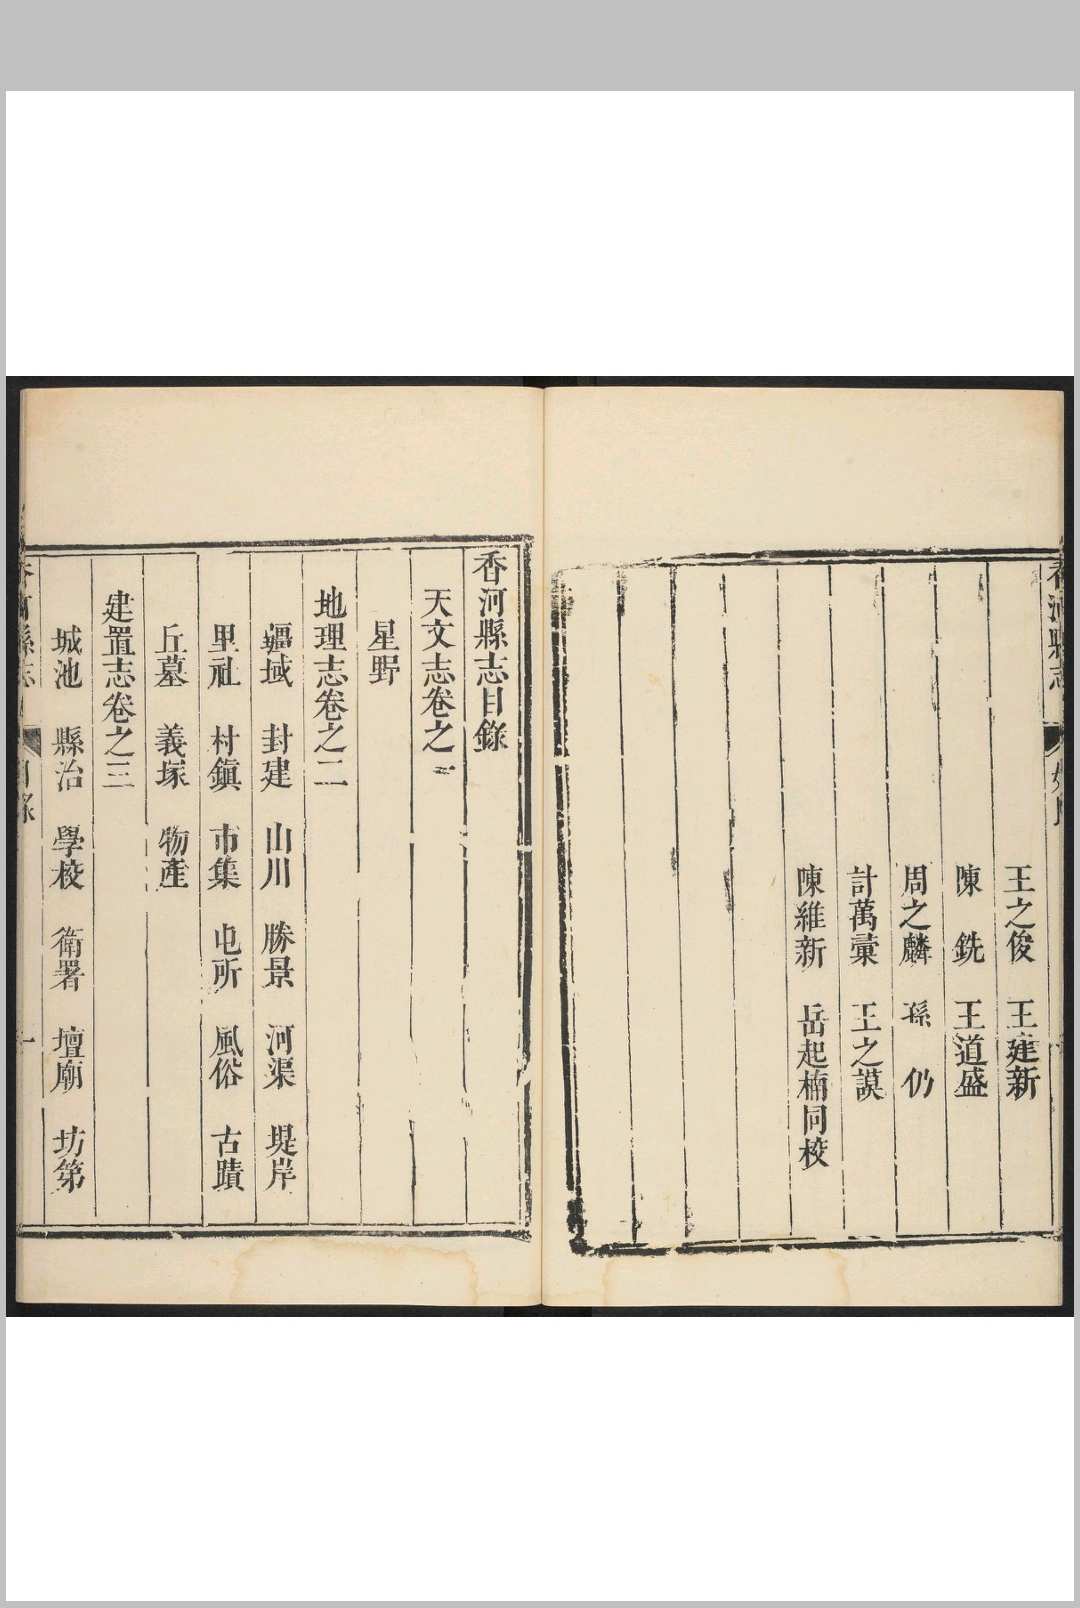 香河縣志
王之俊　王建新
陳　銑　王道盛
周之麟　孫　仍
計萬彚　王之謨
陳維新　岳起楠同校
香河縣志目錄
天文志卷之一
星野
地理志卷之二
疆域　封建　山川　勝景　河渠　堤岸
里社　村鎮　市集　屯所　風俗　古蹟
丘墓　義塚　物產
建置志卷之三
城池　縣治　學校　衛署　壇廟　坊第
香河縣志　目錄　一